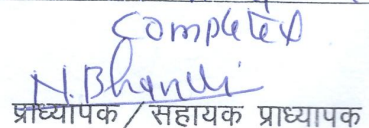 Completed
N. Bhandi
प्राध्यापक / सहायक प्राध्यापक